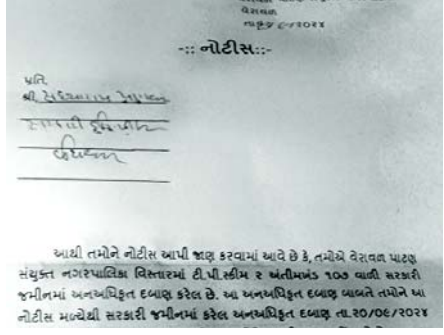 વેરાવળ
-:: નોટીસ::-
પ્રતિ,
શ્રી
આથી તમોને નોટીસ આપી જાણ કરવામાં આવે છે કે, તમોએ વેરાવળ પાટણ
સંયુક્ત નગરપાલિકા વિસ્તારમાં ટી.પી.સ્કીમ ૨ અંતીમખંડ ૧૦૭ વાળી સરકારી
જમીનમાં અનઅધિકૃત દબાણ કરેલ છે. આ અનઅધિકૃત દબાણ બાબતે તમોને આ
નોટીસ મળ્યેથી સરકારી જમીનમાં કરેલ અનઅધિકૃત દબાણ તા.૨૦/૦૯/૨૦૨૪